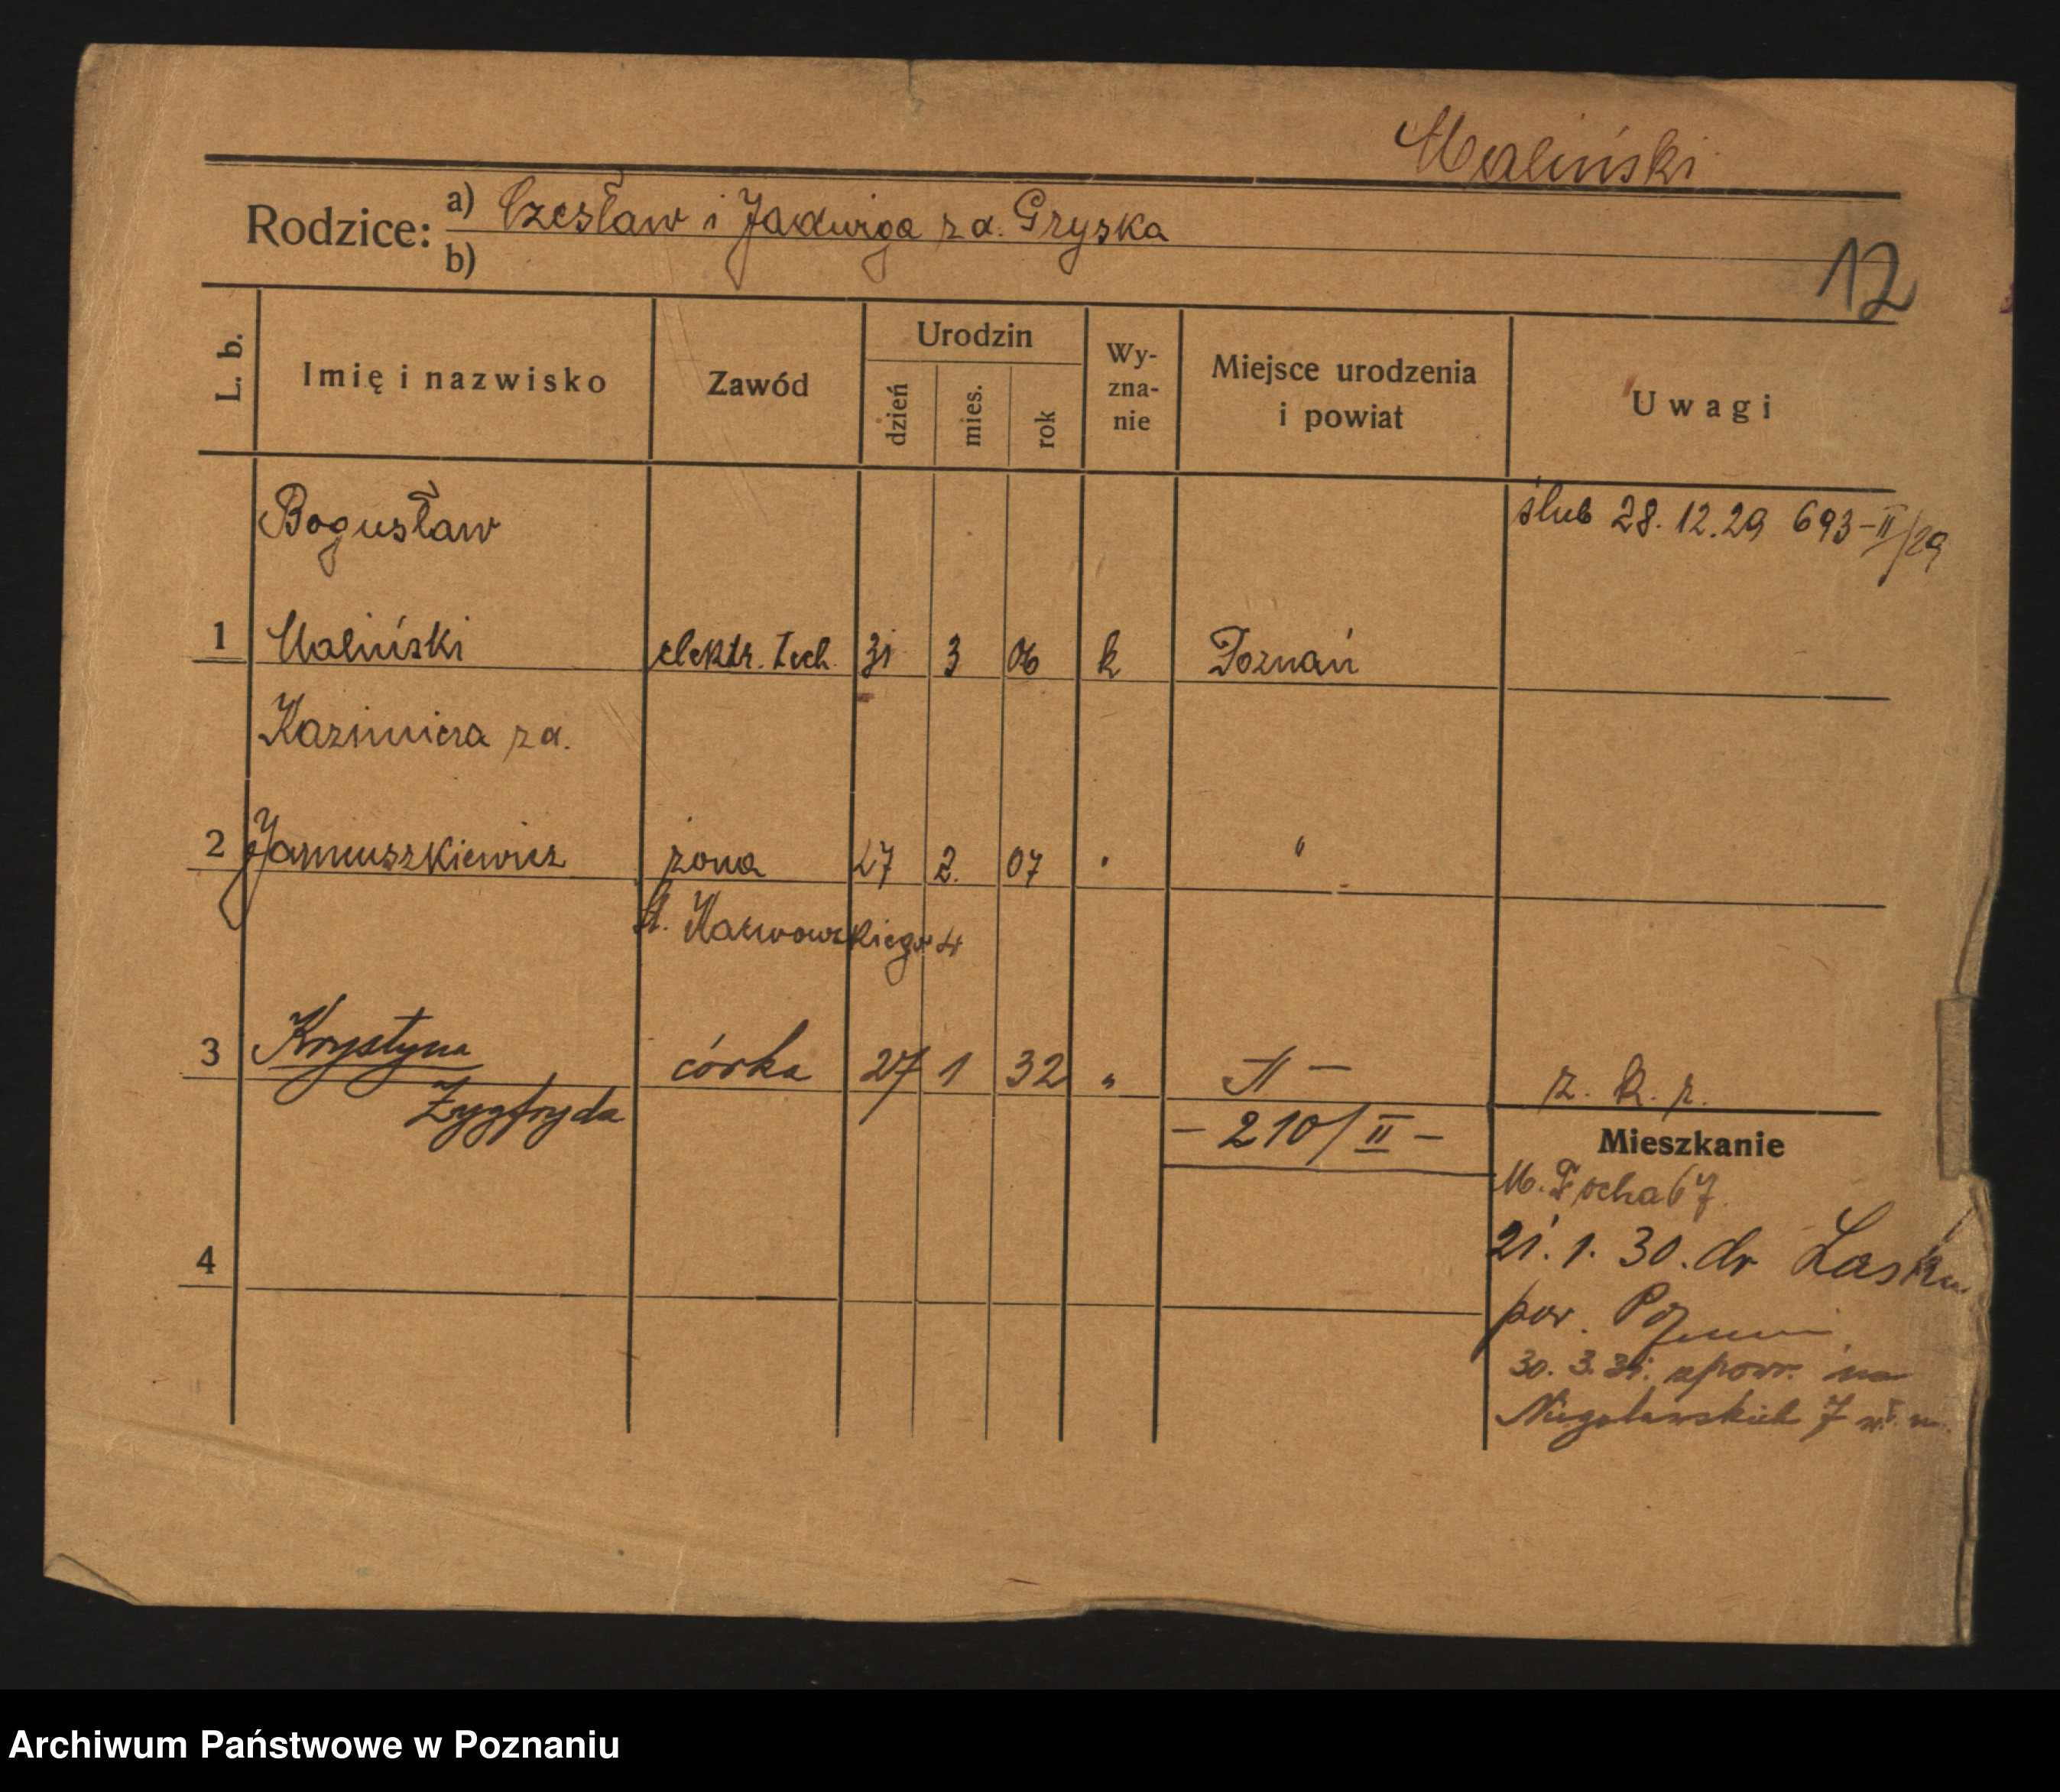 Maliński
Rodzice: a) Czesław i Jadwiga z d. Gryska
b)
12
L. b.
Imię i nazwisko
Zawód
Urodzin
dzień
mies.
rok
Wy-
zna-
nie
Miejsce urodzenia
i powiat
Uwagi
Bogusław
ślub 28.12.29 693-II/29
1 Maliński elektr. tech. 31 3 06 k Poznań
Kazimiera z d.
2 Januszkiewicz żona 27 2. 07 " "
Karwowskiego 4
3 Krystyna córka 27 1 32 " -"-
Zygfryda
z. k. r.
- 210/II -
Mieszkanie
M. Focha 67.
21. 1. 30. do Lasku
pow. Poznań
4
30. 3. 31. z powr. na
Niegolewskich 7 w. m.
Archiwum Państwowe w Poznaniu